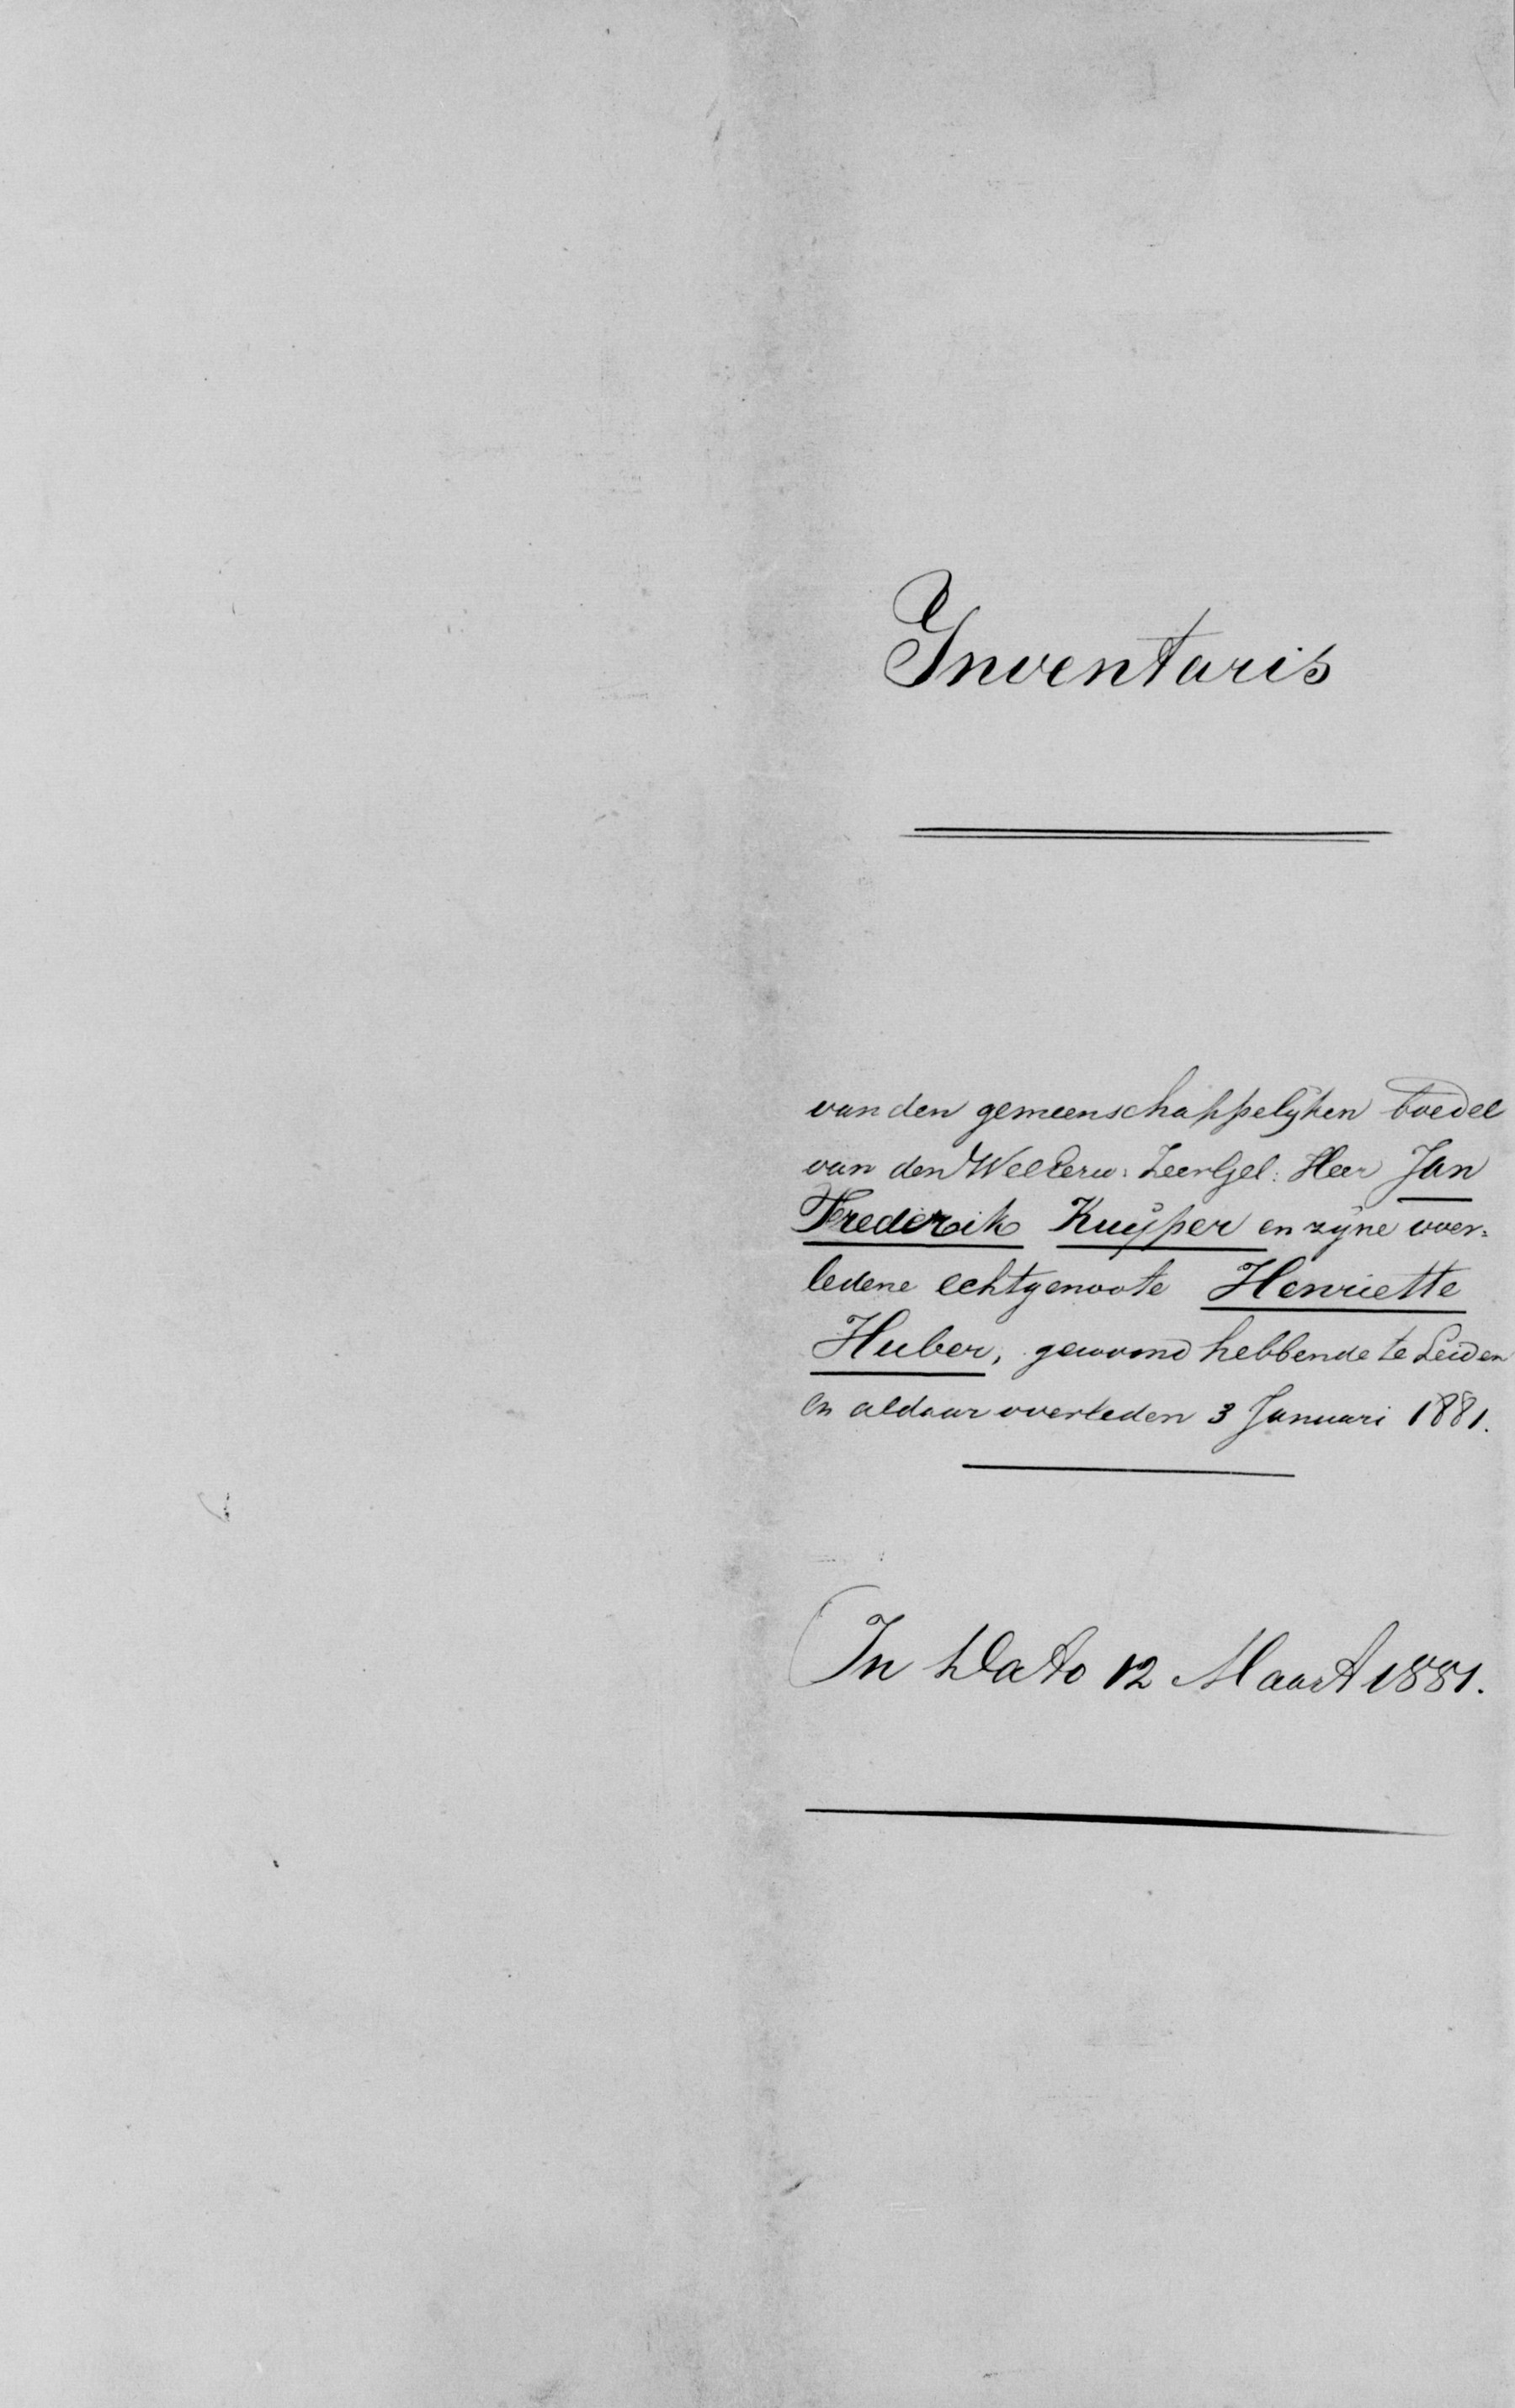 Inventaris
van den gemeenschappelijken boedel
van den WelEerw: ZeerGel: Heer Jan
Frederik Kuijper en zijne over=
ledene echtgenoote Henriette
Huber, gewoond hebbende te Leiden
en aldaar overleden 3 Januari 1881.
In Dato 12 Maart 1881.